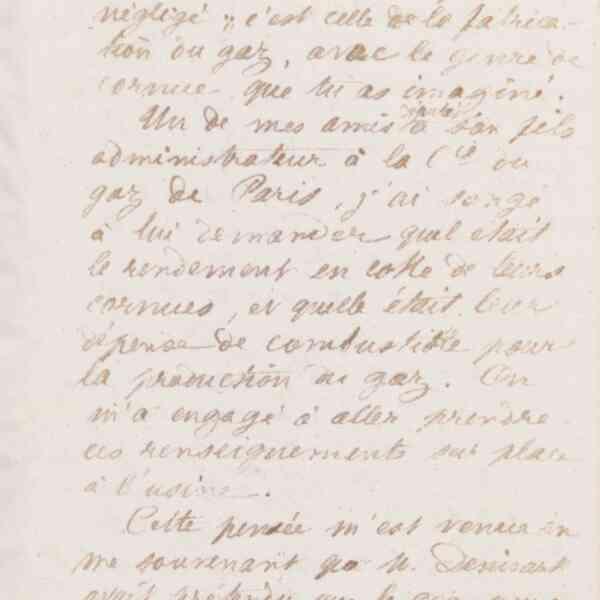 négligé ", c'est celle de la fabrica-
tion du gaz, avec le genre de
cornue que tu as imaginé.
Un de mes amis a son fils
administrateur à la Cie du
gaz de Paris, j'ai songé
à lui demander quel était
le rendement en coke de leurs
cornues, et quelle était leur
dépense de combustible pour
la production du gaz. On
m'a engagé à aller prendre
ces renseignements sur place
à l'usine.
Cette pensée m'est venue en
me souvenant que M. Denisart
avait prétendu